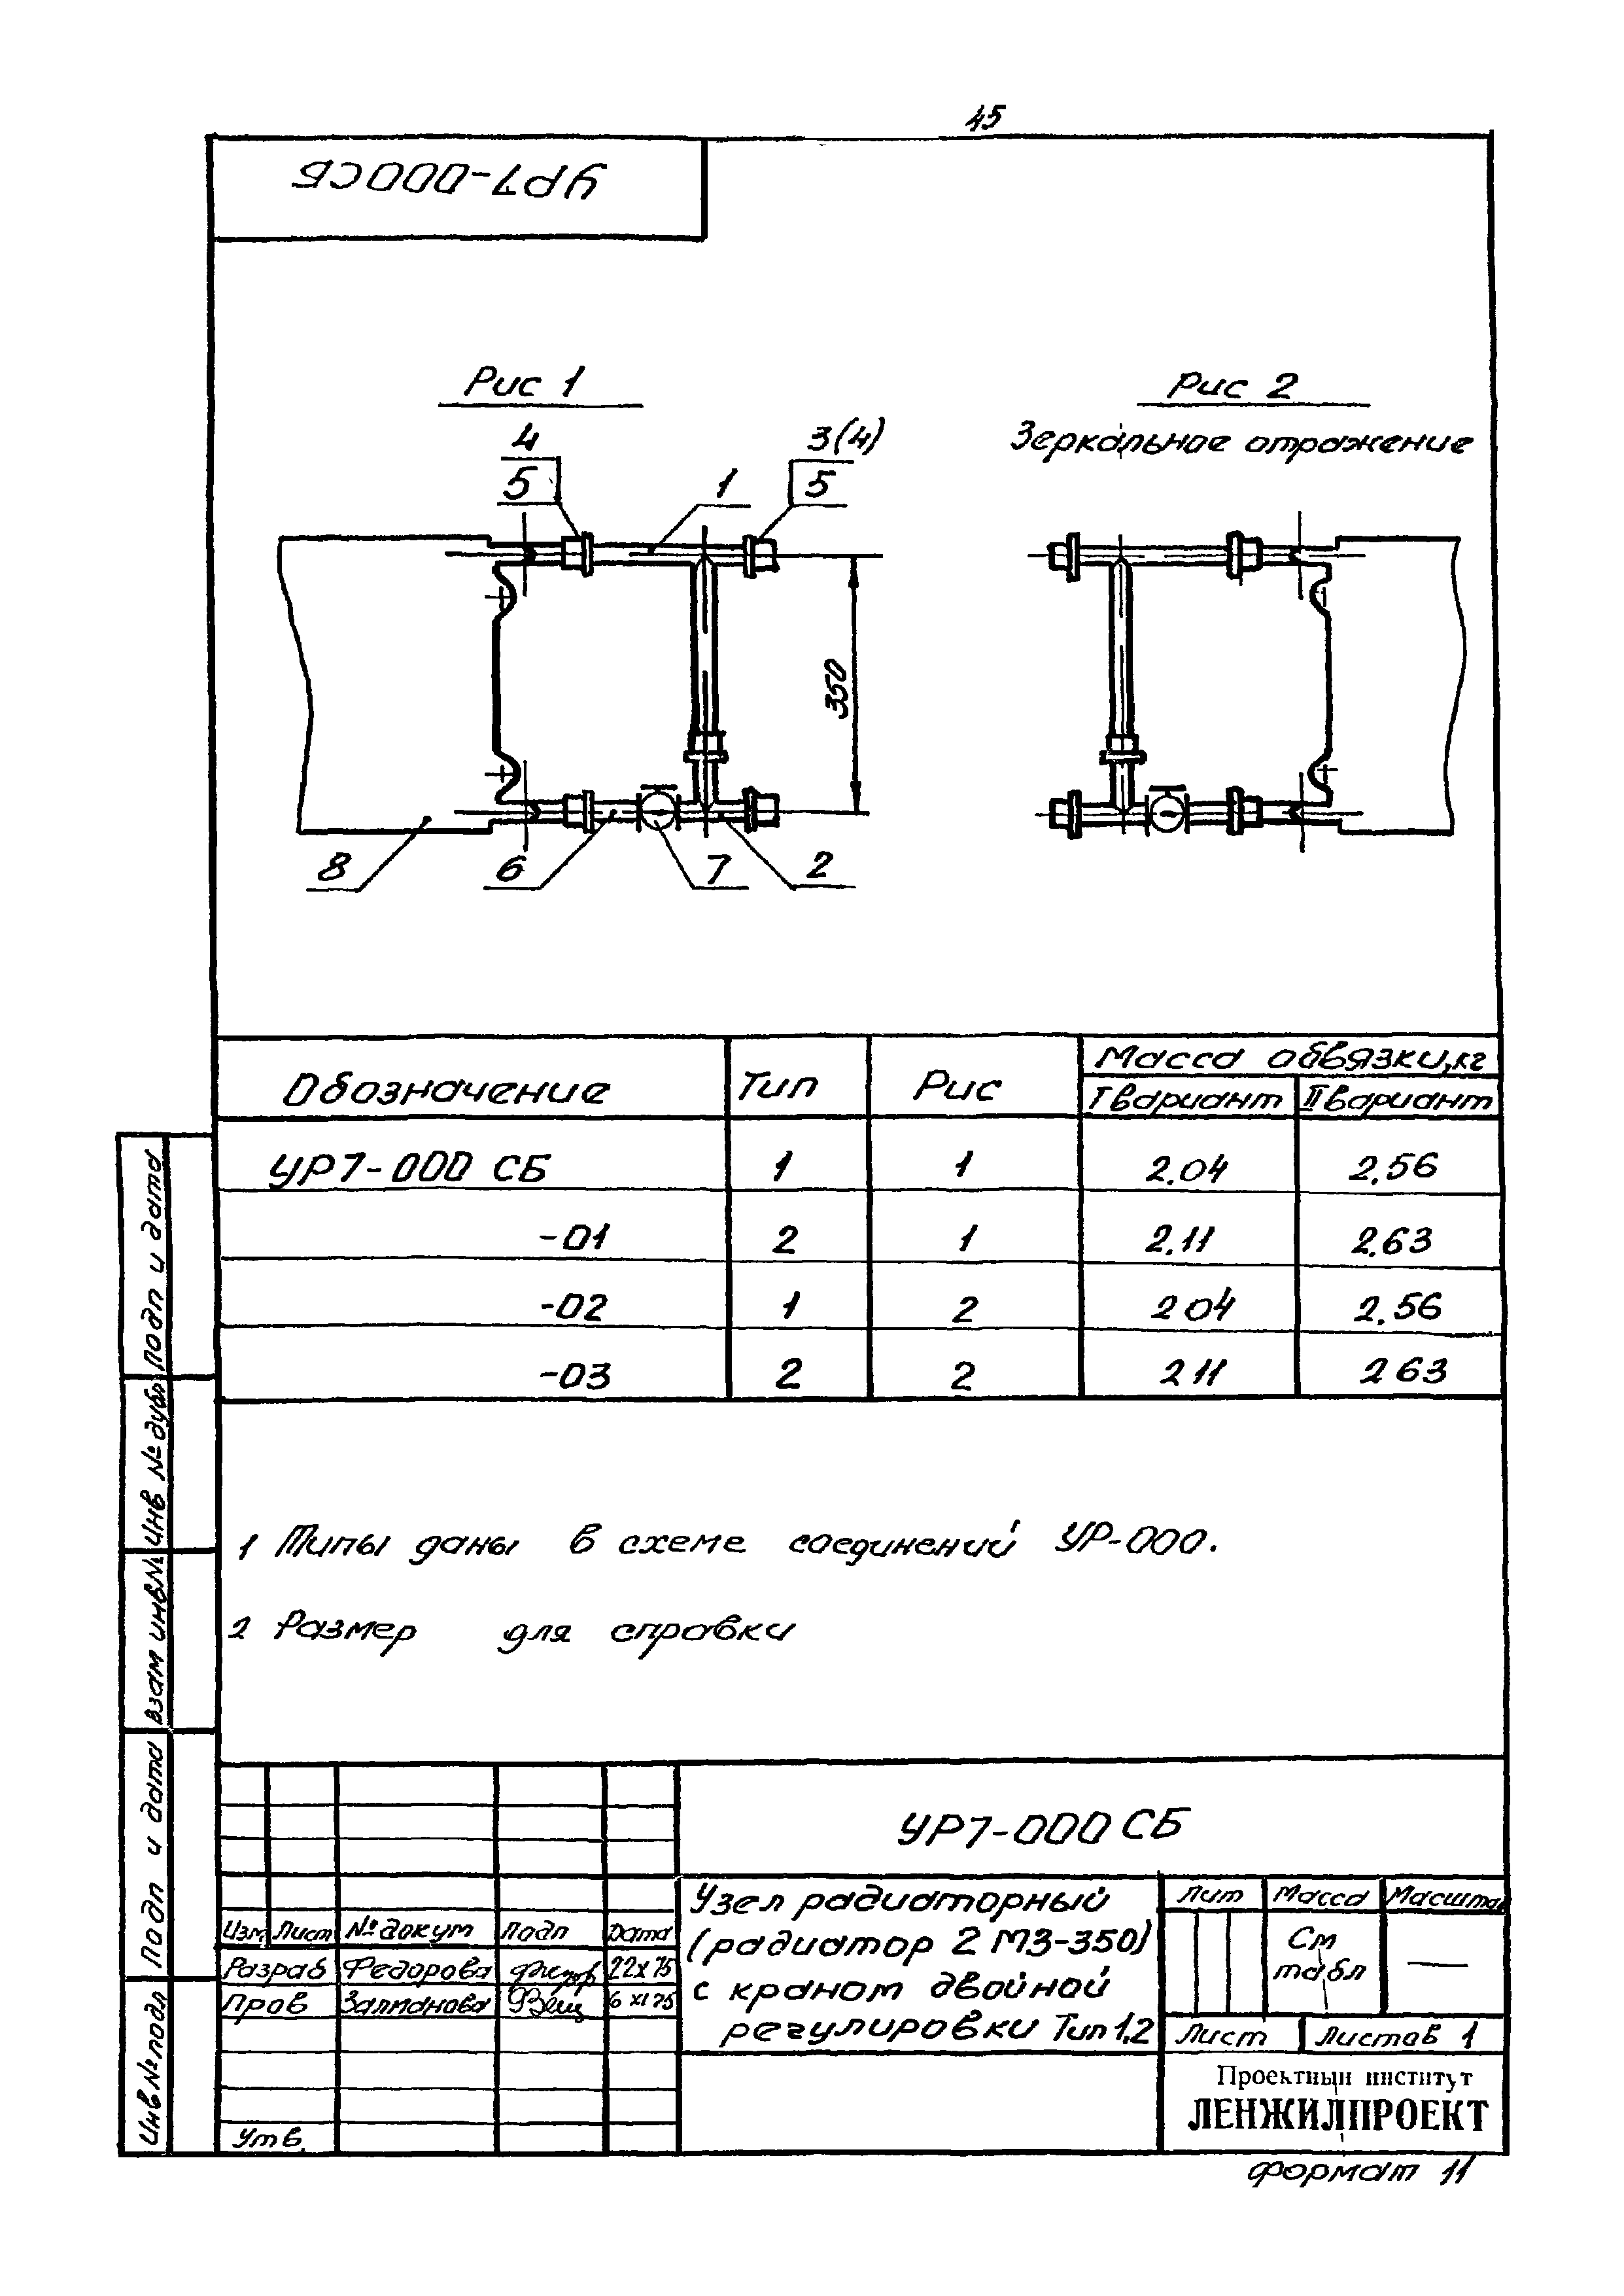 45
УР7-000СБ
Рис 1
Рис 2
Зеркальное отражение
4
5
1
3(4)
5
350
8
6
7
2
Обозначение Тип Рис Масса обвязки,кг
I вариант II вариант
УР7-000 СБ 1 1 2.04 2.56
-01 2 1 2.11 2.63
-02 1 2 2 04 2.56
-03 2 2 2 11 2 63
1 Типы даны в схеме соединений УР-000.
2 Размер для справки
Подп и дата
Инв № дубл
Взам инв №
Подп и дата
Инв № подл
УР7-000 СБ
Узел радиаторный
(радиатор 2 МЗ-350)
с краном двойной
регулировки Тип 1,2
Лит Масса Масштаб
См
табл
—
Лист Листов 1
Изм Лист № докум Подп Дата
Разраб Федорова 22 X 75
Пров Залманова 6 XI 75
Утв.
Проектный институт
ЛЕНЖИЛПРОЕКТ
Формат 11